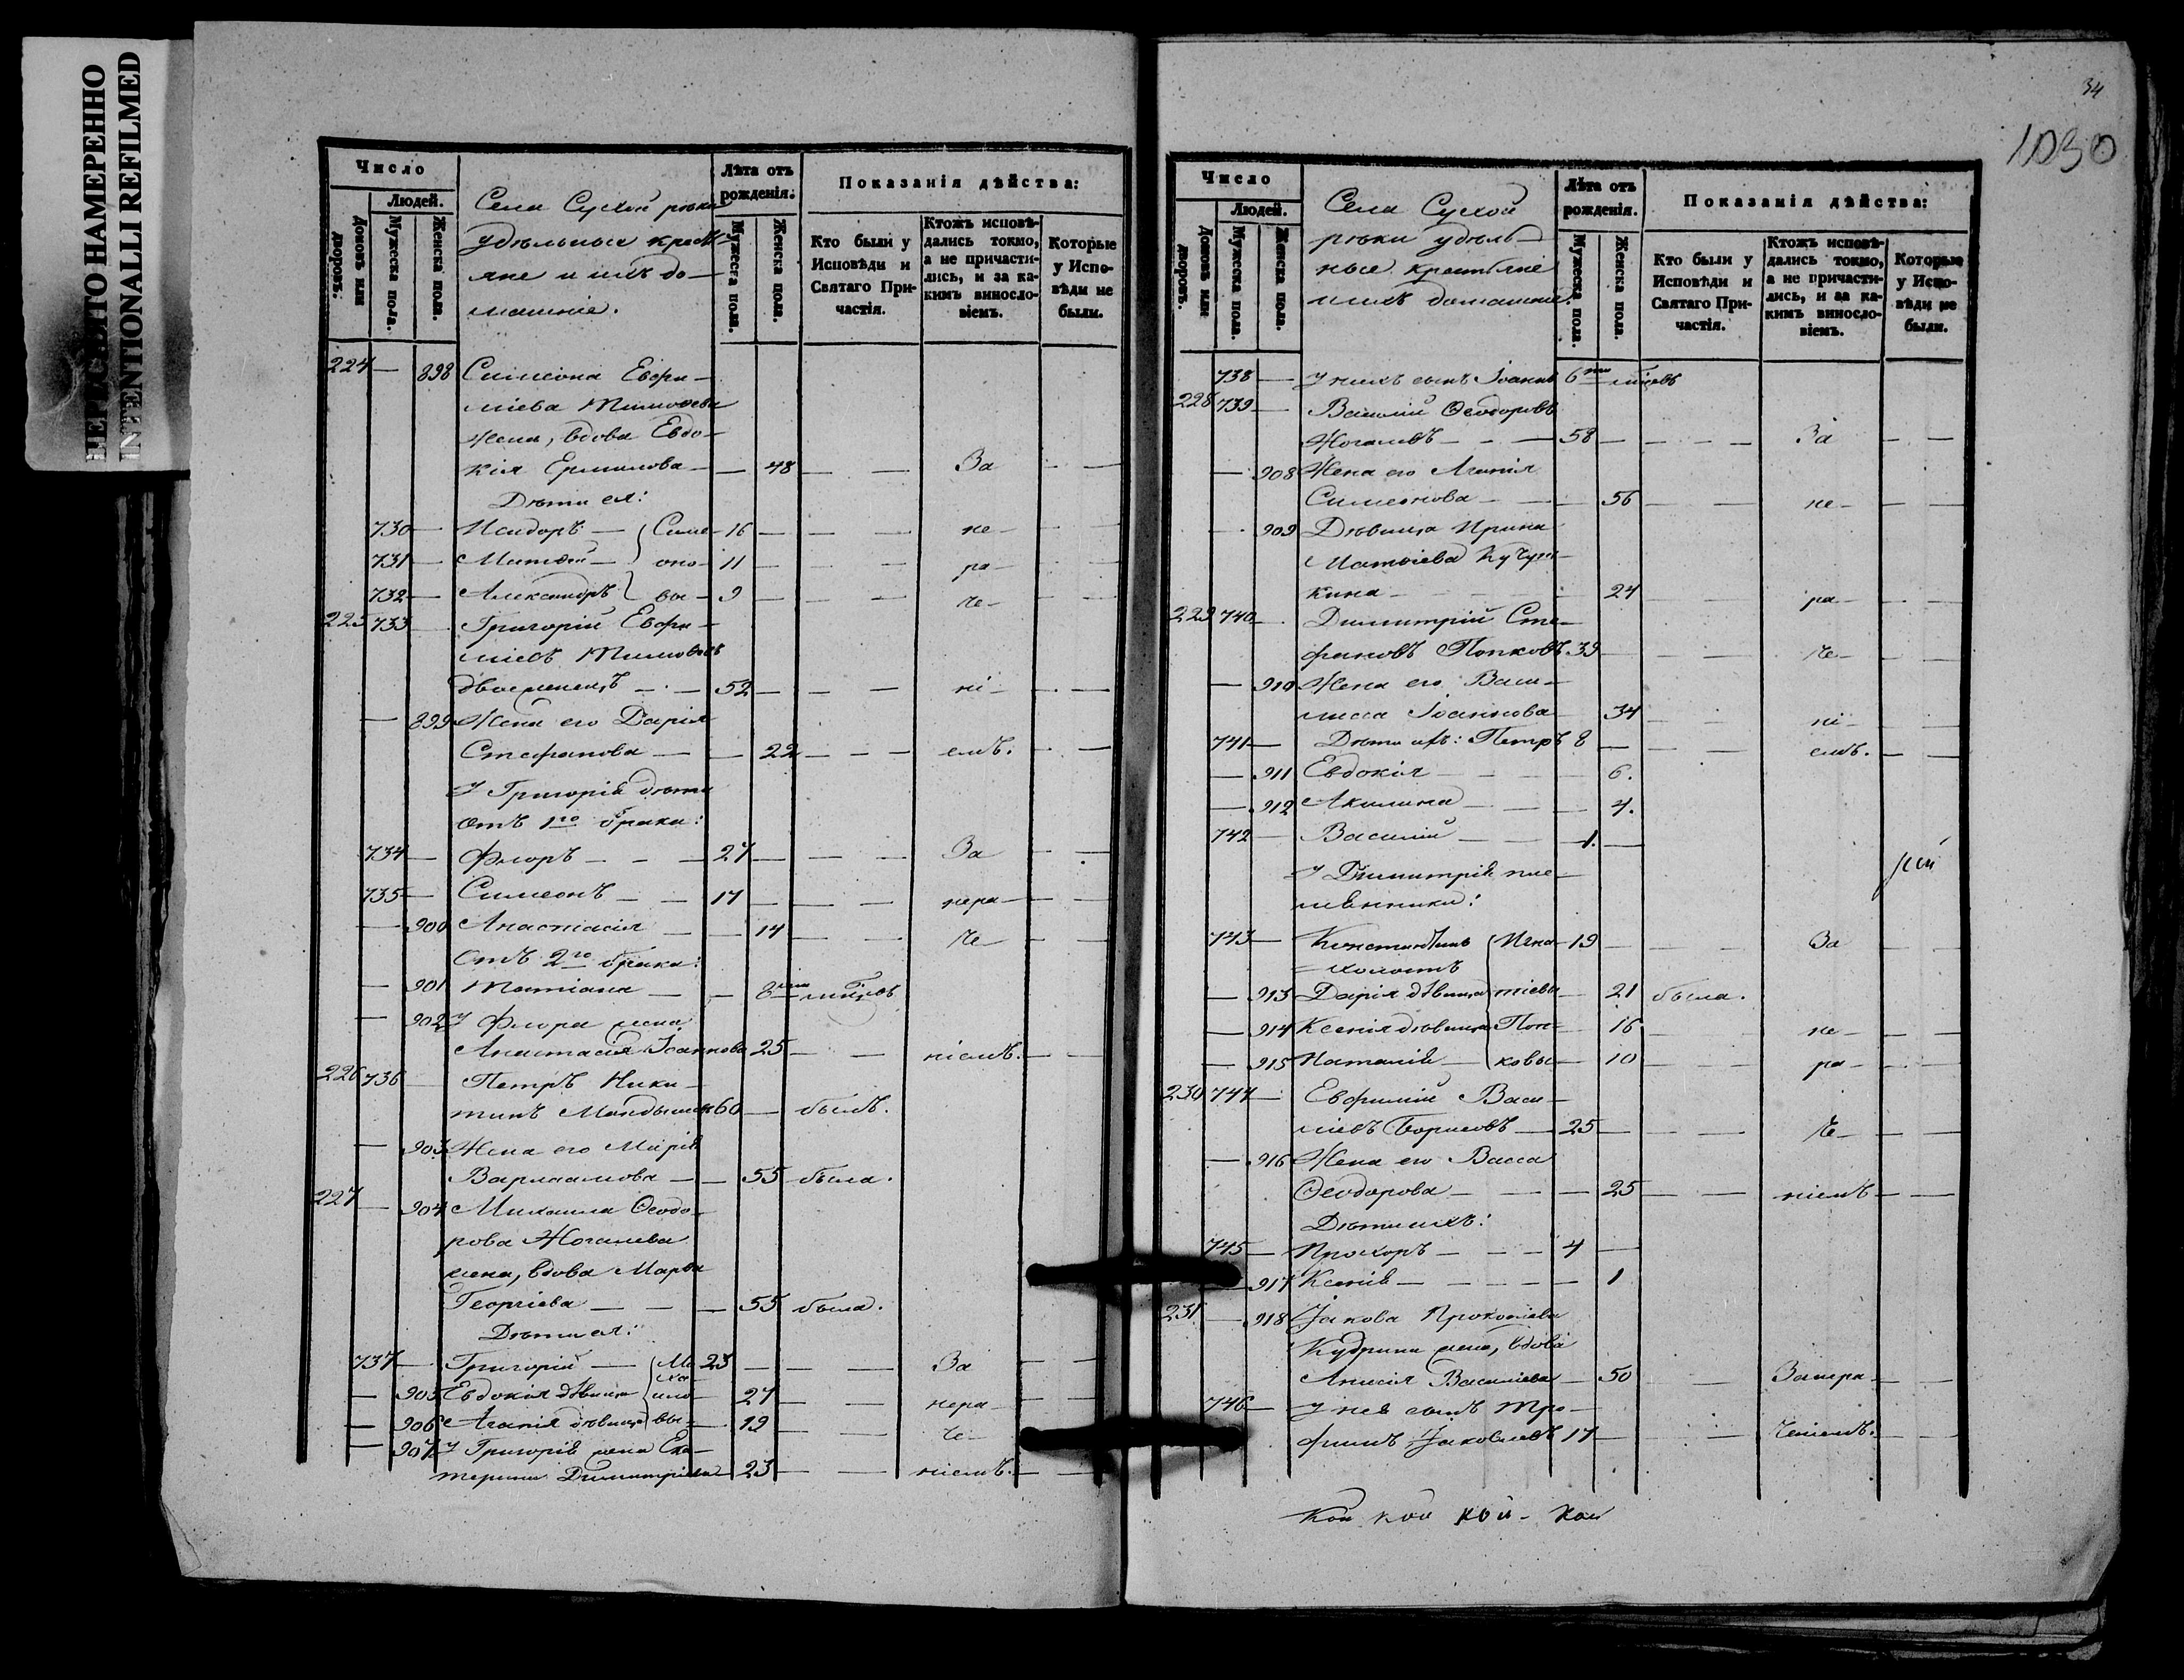 НЕРГОДЕІТО НАМЕРЕННО
INTENTIONALLI REFILMED
34
1030
Число
Людей.
Домовъ или дворовъ.
Мужеска пола.
Женска пола.
Села Сухой рѣки
удѣльные крестья
яне и ихъ до-
машніе.
Лѣта отъ рожденія.
Мужеска пола.
Женска пола.
Показанія дѣйства:
Кто были у Исповѣди и Святаго Причастія.
Ктожъ исповѣдались токмо, а не причастились, и за какимъ винословіемъ.
Которые у Исповѣди не были.
224 — 898 Симеона Евфи-
міева Тимофеева
жена, вдова Евдо-
кія Ермилова — 48 — — За — —
Дѣти ея:
730 — Исидоръ — Симе- 16 — — — не — —
731 — Матѳей — оно- 11 — — — ра — —
732 — Александръ вы — 9 — — — че — —
225 733 Григорій Евфи-
міевъ Тимофеевъ
двоеженецъ — 52 — — — ні — —
— 899 Жена его Дарія
Стефанова — — 22 — — емъ. — —
У Григорія дѣти
отъ 1го брака:
734 — Флоръ — — 27 — — — За — —
735 — Симеонъ — — 17 — — — нера — —
— 900 Анастасія — — 14 — — че — —
Отъ 2го брака:
— 901 Татіана — — 8ми мѣсяцевъ
— 902 У Флора жена
Анастасія Іоаннова 25 — — ніемъ. — —
226 736 Петръ Ники-
тинъ 60 — былъ.
— 903 Жена его Марія
Варлаамова — — 55 была.
227 — 904 Михаила Ѳеодо-
рова Жогалева
жена, вдова Марѳа
Георгіева — — — 55 была.
Дѣти ея:
737 — Григорій — Ми 23 — — — За — —
— 905 Евдокія дѣвица хаило- 27 — — нера — —
— 906 Агапія дѣвица вы — 19 — — че — —
— 907 У Григорія жена Ека-
терина Димитріева 23 — — ніемъ. — —
Число
Людей.
Домовъ или дворовъ.
Мужеска пола.
Женска пола.
Села Сухой
рѣки удѣль-
ные крестьяне
и ихъ домашніе.
Лѣта отъ рожденія.
Мужеска пола.
Женска пола.
Показанія дѣйства:
Кто были у Исповѣди и Святаго Причастія.
Ктожъ исповѣдались токмо, а не причастились, и за какимъ винословіемъ.
Которые у Исповѣди не были.
738 — У нихъ сынъ Іоаннъ 6ти мѣсяцевъ
228 739 — Василій Ѳеодоровъ
Жогалевъ — — — 58 — — — — За — —
— 908 Жена его Агапія
Симеонова — — 56 — — не — — —
— 909 Дѣвица Ирина
Матвіева
кина — — — 24 ра — — —
229 740 — Димитрій Сте-
фановъ Попковъ 39 — — — че — — —
— 910 Жена его Васи-
лисса Іоаннова 34 — — ні — — —
741 — Дѣти ихъ: Петръ 8 — — — емъ. — —
— 911 Евдокія — — — 6.
— 912 Акилина — — — 4.
742 — Василій — — 1. —
У Димитрія пле-
мянники:
743 — Константинъ Игна- 19 — — — За — —
холостъ
— 913 Дарія дѣвица тіевы — 21 была.
— 914 Ксенія дѣвица Поп- 16 — — не — — —
— 915 Наталія — ковы — 10 — — ра — — —
230 744 — Евфимій Васи-
ліевъ Борисовъ — 25 — — — че — — —
— 916 Жена его Васса
Ѳеодорова — — — 25 — — ніемъ — —
Дѣти ихъ:
745 — Прохоръ — — — 4 —
— 917 Ксенія — — — — 1
231 — 918 Іакова Прокопіева
Кудрина жена, вдова
Анисія Василіева — 50 — — Занера — —
746 — У нея сынъ Тро-
фимъ Іаковлевъ 17 — — — ченіемъ. — —
кои кои кои - кои